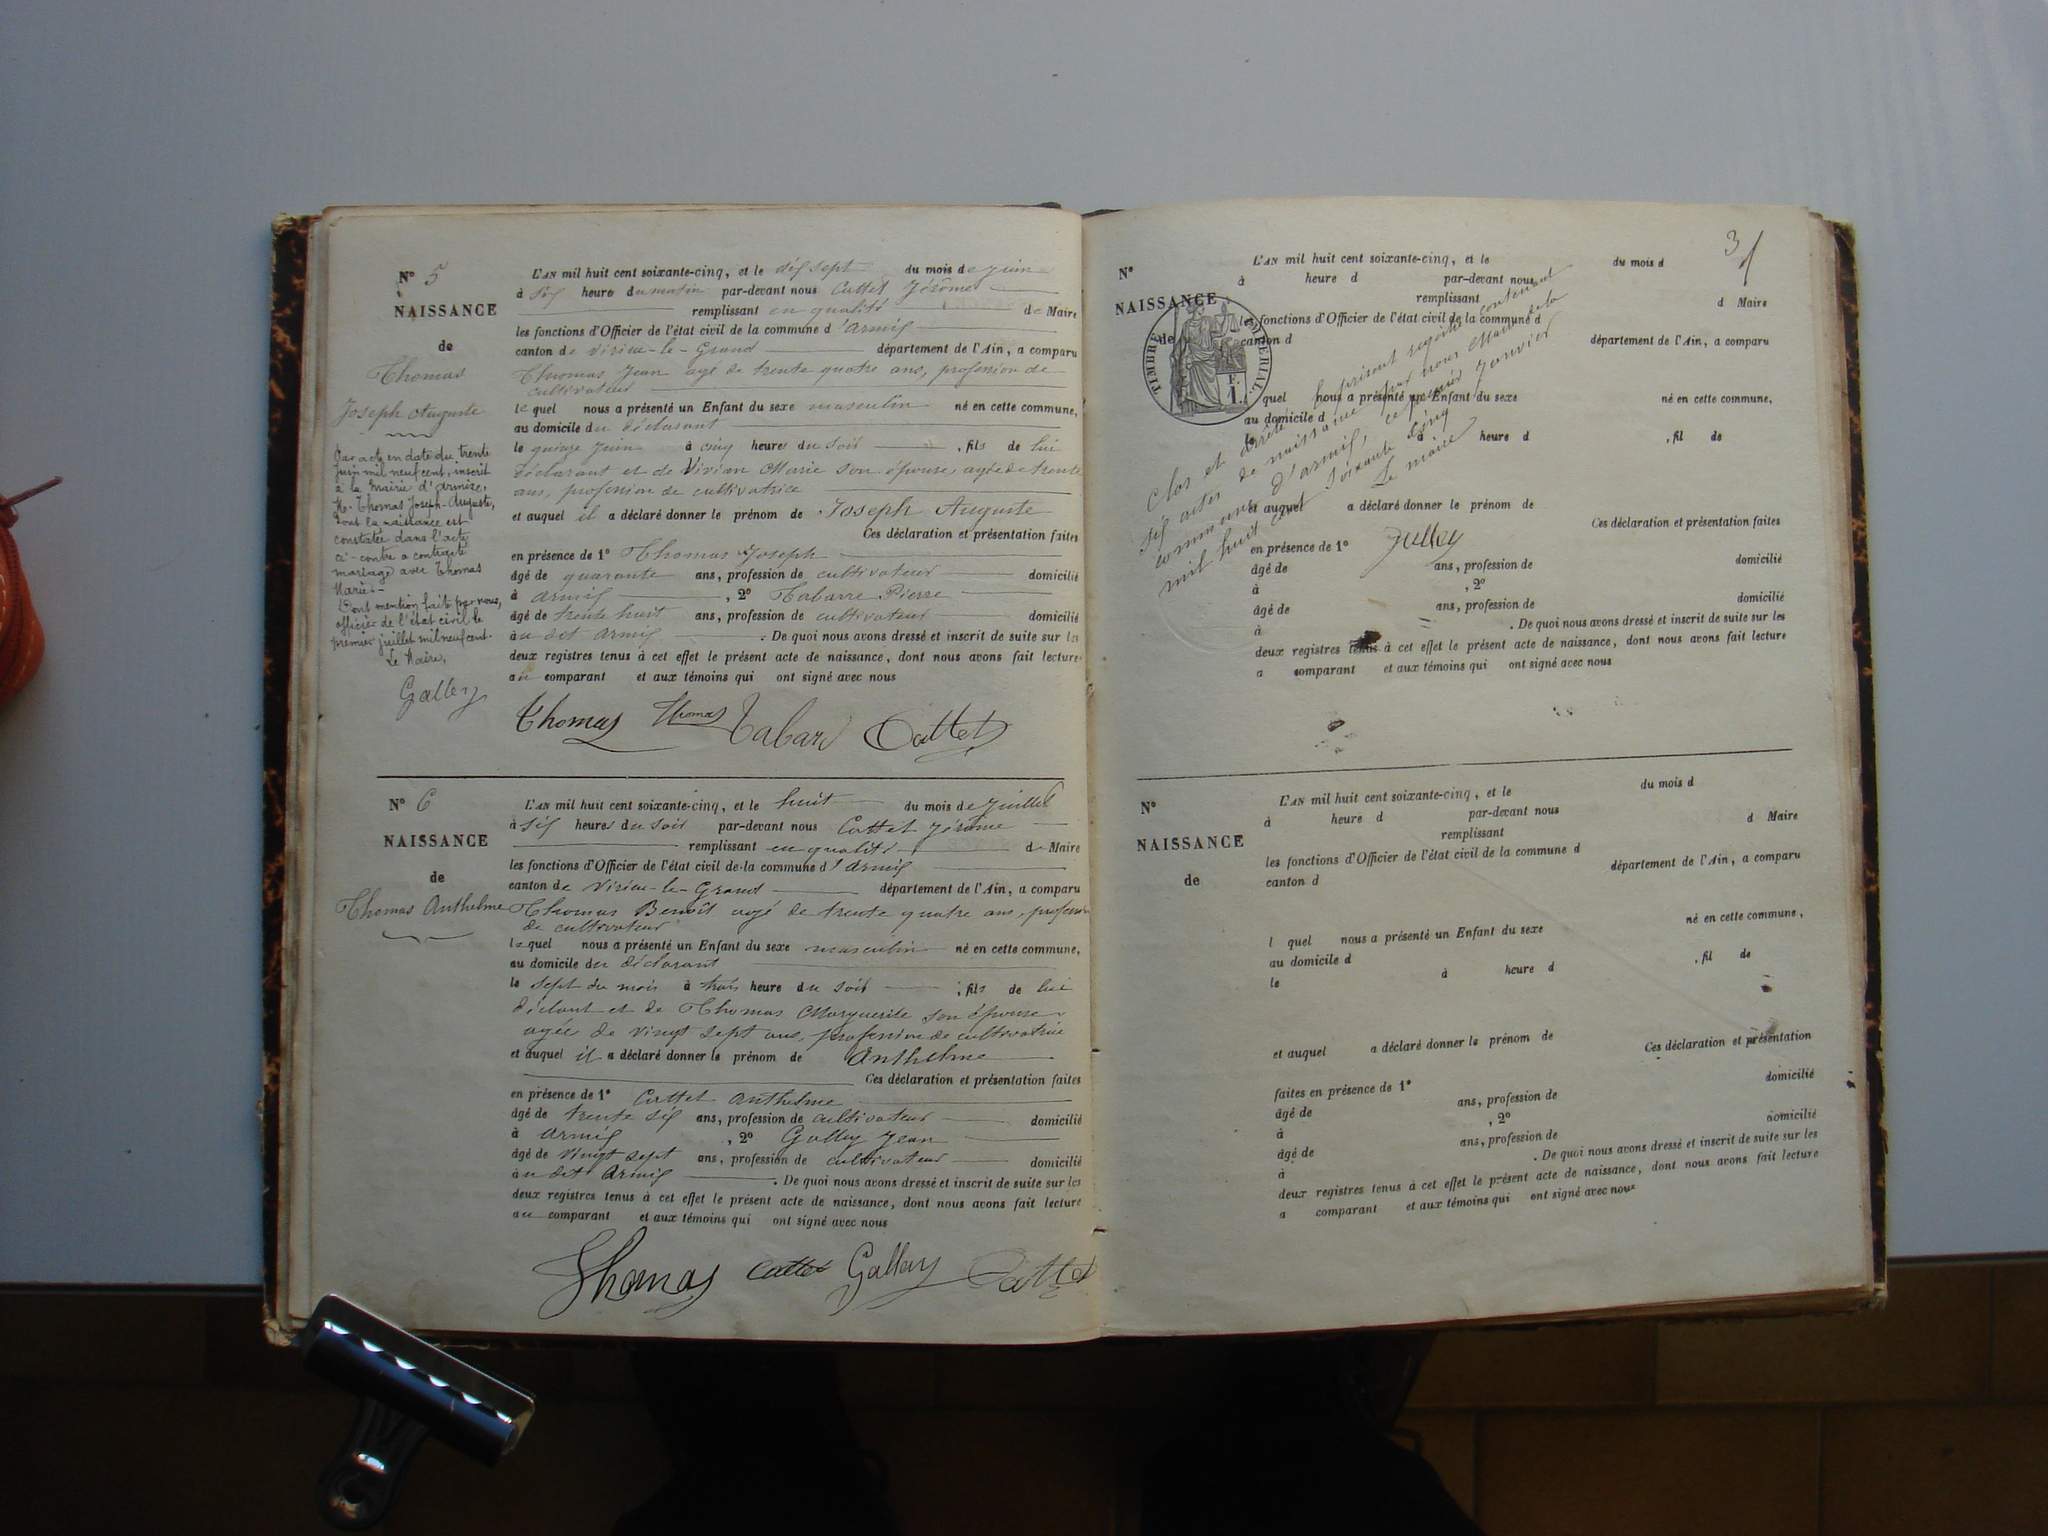 N° 5
NAISSANCE
de
Thomas
Joseph Auguste
Par acte en date du trente
juin mil neuf cent, inscrit
à la mairie d'Armix,
M. Thomas Joseph-Auguste,
dont la naissance est
constatée dans l'acte
ci-contre a contracté
mariage avec Thomas
Marie.-
Dont mention faite par nous,
officier de l'état civil le
premier juillet mil neuf cent.
Le Maire,
Gallay
L'AN mil huit cent soixante-cinq, et le dix sept du mois de juin
à six heure du matin par-devant nous Cattet Jérôme
remplissant en qualité de Maire
les fonctions d'Officier de l'état civil de la commune d'armix
canton de Virieu-le-Grand département de l'Ain, a comparu
Thomas Jean agé de trente quatre ans, profession de
cultivateur
lequel nous a présenté un Enfant du sexe masculin né en cette commune,
au domicile du déclarant
le quinze juin à cinq heures du soir, fils de lui
déclarant et de Vivian Marie son épouse, agée de trente
ans, profession de cultivatrice
et auquel il a déclaré donner le prénom de Joseph Auguste
Ces déclaration et présentation faites
en présence de 1° Thomas Joseph
âgé de quarante ans, profession de cultivateur domicilié
à armix, 2° Tabarre Pierre
âgé de trente huit ans, profession de cultivateur domicilié
au dit armix. De quoi nous avons dressé et inscrit de suite sur les
deux registres tenus à cet effet le présent acte de naissance, dont nous avons fait lecture
au comparant et aux témoins qui ont signé avec nous
Thomas Thomas Tabard Cattet
N° 6
NAISSANCE
de
Thomas Anthelme
L'AN mil huit cent soixante-cinq, et le huit du mois de juillet
à six heures du soir par-devant nous Cattet Jérôme
remplissant en qualité de Maire
les fonctions d'Officier de l'état civil de la commune d'armix
canton de Virieu-le-Grand département de l'Ain, a comparu
Thomas Benoît agé de trente quatre ans, profession
de cultivateur
lequel nous a présenté un Enfant du sexe masculin né en cette commune,
au domicile du déclarant
le sept du mois à trois heure du soir, fils de lui
déclant et de Thomas Marguerite son épouse
agée de vingt sept ans, profession de cultivatrice
et auquel il a déclaré donner le prénom de Anthelme
Ces déclaration et présentation faites
en présence de 1° Cattet Anthelme
âgé de trente six ans, profession de cultivateur domicilié
à armix, 2° Gallay Jean
âgé de vingt sept ans, profession de cultivateur domicilié
au dit armix. De quoi nous avons dressé et inscrit de suite sur les
deux registres tenus à cet effet le présent acte de naissance, dont nous avons fait lecture
au comparant et aux témoins qui ont signé avec nous
Thomas Cattet Gallay Cattet
3
N°
NAISSANCE
de
TIMBRE IMPERIAL
1 F.
L'AN mil huit cent soixante-cinq, et le du mois d
à heure d par-devant nous
remplissant d Maire
les fonctions d'Officier de l'état civil de la commune d
canton d département de l'Ain, a comparu
l quel nous a présenté un Enfant du sexe né en cette commune,
au domicile d
le à heure d, fil de
et auquel a déclaré donner le prénom de
Ces déclaration et présentation faites
en présence de 1°
âgé de ans, profession de domicilié
à, 2°
âgé de ans, profession de domicilié
à. De quoi nous avons dressé et inscrit de suite sur les
deux registres tenus à cet effet le présent acte de naissance, dont nous avons fait lecture
a comparant et aux témoins qui ont signé avec nous
Clos et arrêté le présent registre contenant
six actes de naissance par nous Maire de la
commune d'armix, ce premier Janvier
mil huit cent soixante cinq
Le maire
N°
NAISSANCE
de
L'AN mil huit cent soixante-cinq, et le du mois d
à heure d par-devant nous
remplissant d Maire
les fonctions d'Officier de l'état civil de la commune d
canton d département de l'Ain, a comparu
l quel nous a présenté un Enfant du sexe né en cette commune,
au domicile d
le à heure d, fil de
et auquel a déclaré donner le prénom de
Ces déclaration et présentation
faites en présence de 1°
âgé de ans, profession de domicilié
à, 2°
âgé de ans, profession de domicilié
à. De quoi nous avons dressé et inscrit de suite sur les
deux registres tenus à cet effet le présent acte de naissance, dont nous avons fait lecture
a comparant et aux témoins qui ont signé avec nous